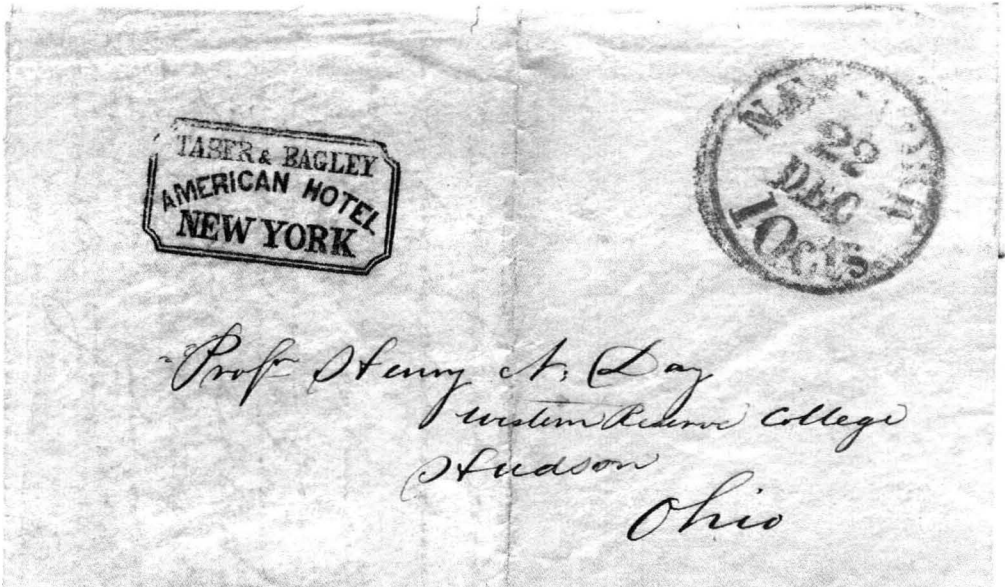 TABER & BAGLEY
AMERICAN HOTEL
NEW YORK
NEW YORK
22
DEC
10 cts
Profr Henry N. Day
Western Reserve College
Hudson
Ohio